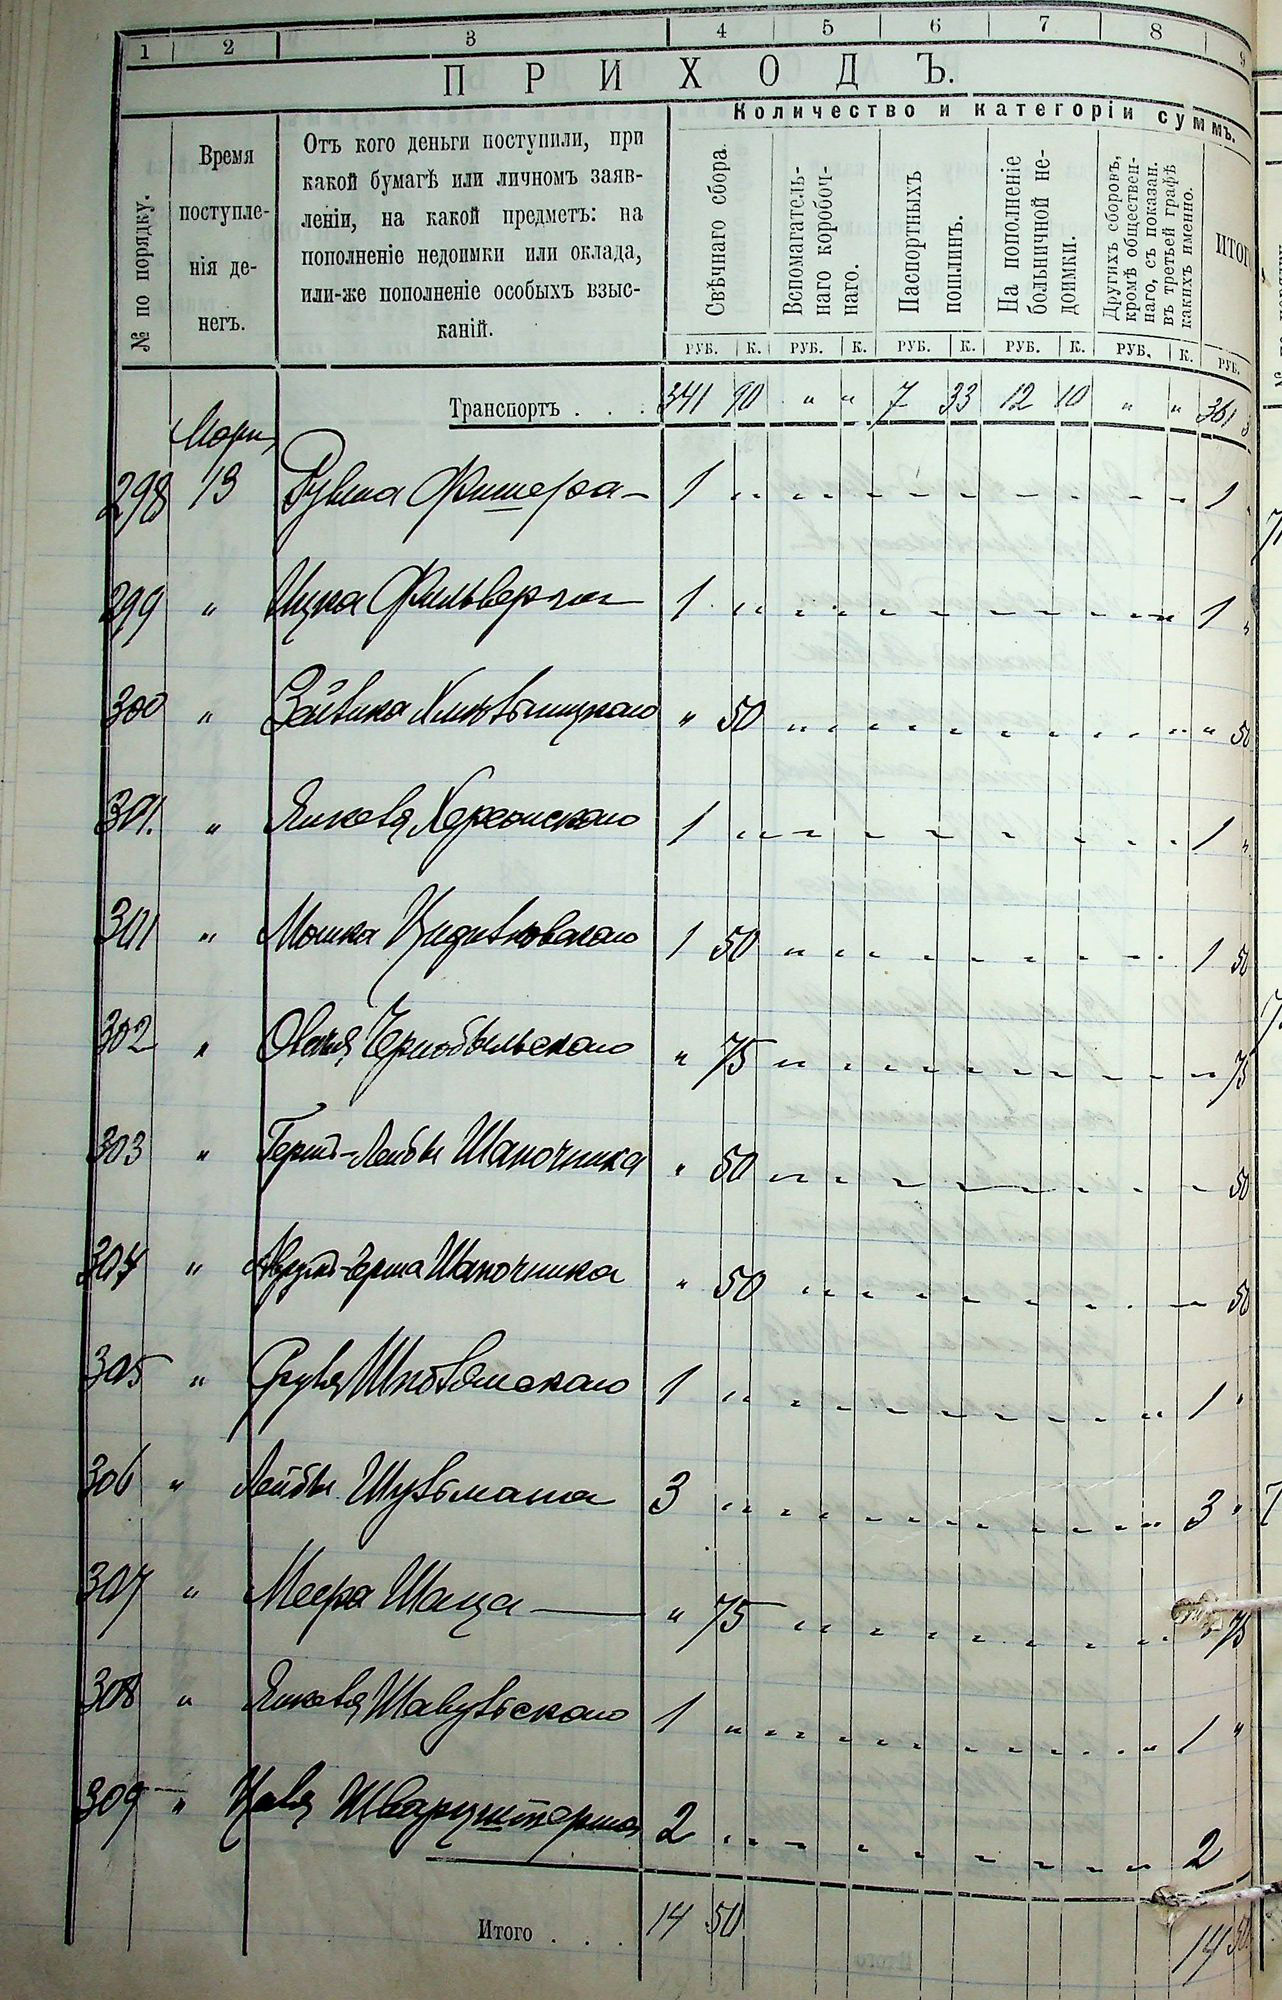 1 2 3 4 5 6 7 8 9
ПРИХОДЪ.
Количество и категоріи суммъ.
№ по порядку.
Время
поступле-
нія де-
негъ.
Отъ кого деньги поступили, при
какой бумагѣ или личномъ заяв-
леніи, на какой предметъ: на
пополненіе недоимки или оклада,
или-же пополненіе особыхъ взыс-
каній.
Свѣчнаго сбора.
Вспомагатель-
наго коробоч-
наго.
Паспортныхъ
пошлинъ.
На пополненіе
больничной не-
доимки.
Другихъ сборовъ,
кромѣ обществен-
наго, съ показан.
въ третьей графѣ
какихъ именно.
ИТОГ
РУБ. К. РУБ. К. РУБ. К. РУБ. К. РУБ. К. РУБ.
Транспортъ . . . 341 90 " " 7 33 12 10 " " 361
298 13 Рувина Фишера 1 1
299 " Ицка 1 1
300 " " 50 " 50
301. " Янкеля Херсонскаго 1 1 "
301 " Мошка 1 50 1 50
302 " Овшія Чернобыльскаго " 75 75
303 " Герша-Лейбы Шапочника " 50 50
304 " Шапочника " 50 50
305 " Сруля 1 1 "
306 " Лейбы Шульмана 3 3 "
307 " Меера Шаца " 75 " 75
308 " Янкеля 1 1 "
309 " Шварцштерна 2 2
Итого . . . 14 50 14 50